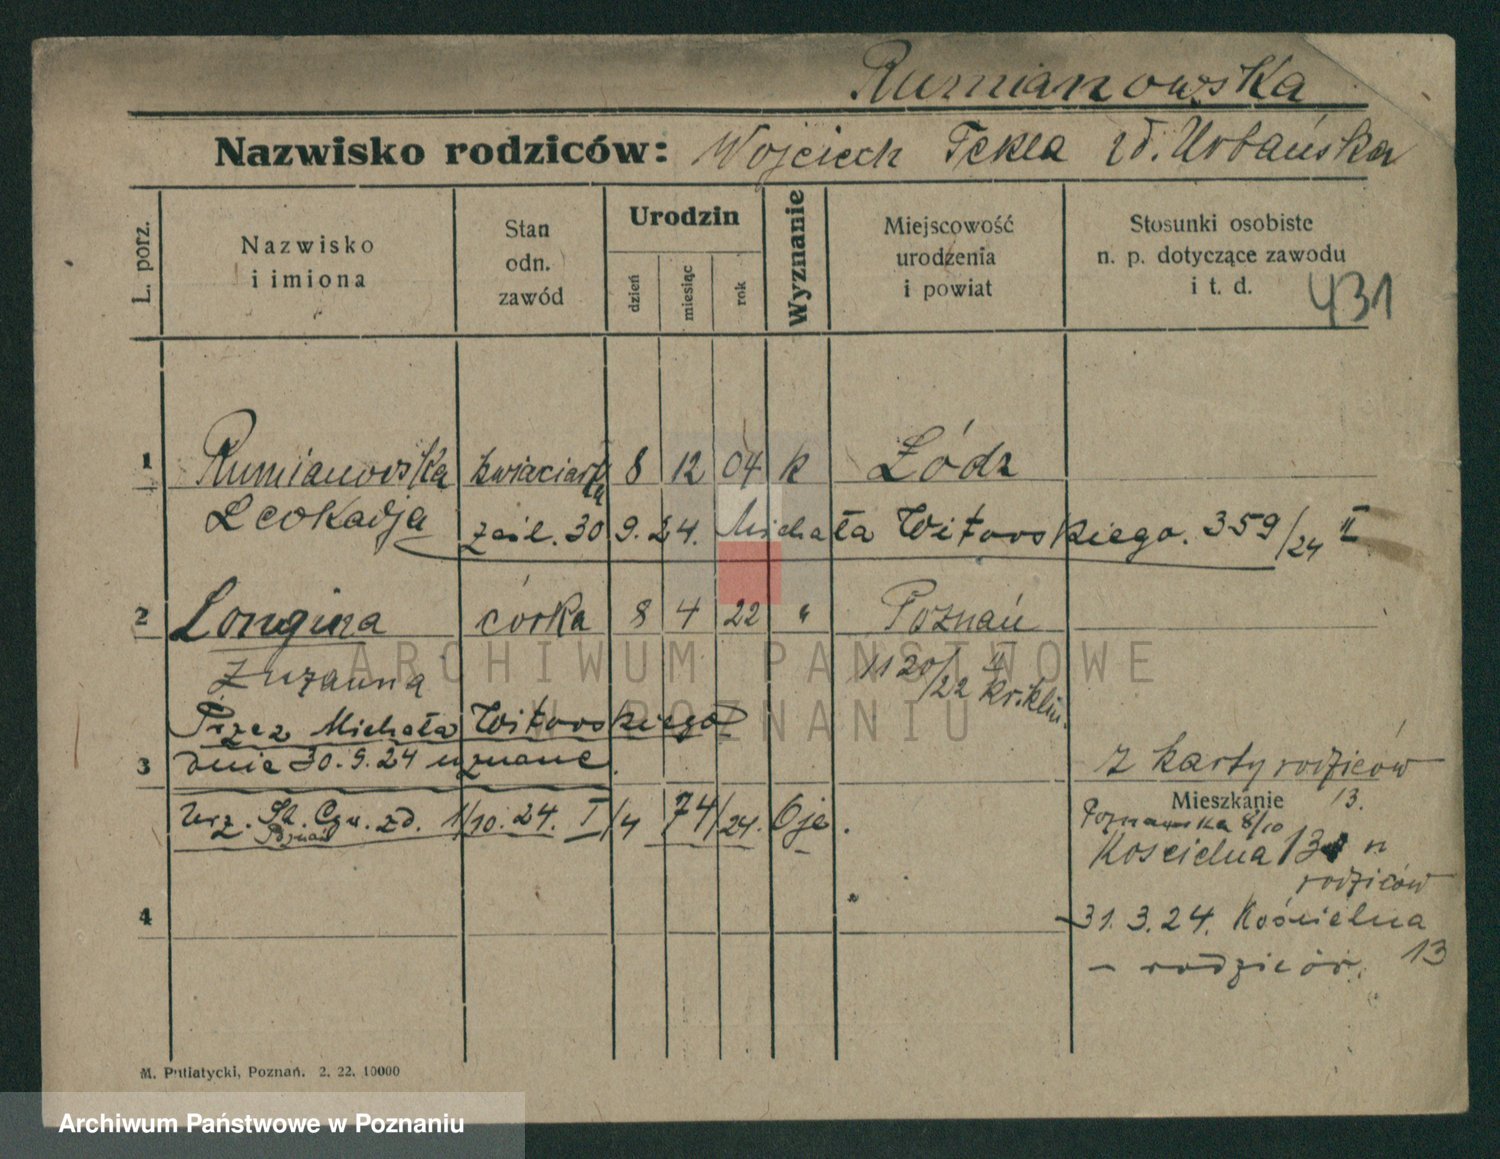 Rumianowska
Nazwisko rodziców: Wojciech Tekla zd. Urbańska
L. porz.
Nazwisko
i imiona
Stan
odn.
zawód
Urodzin
dzień
miesiąc
rok
Wyznanie
Miejscowość
urodzenia
i powiat
Stosunki osobiste
n. p. dotyczące zawodu
i t. d.
431
1 Rumianowska kwiaciarka 8 12 04 k Łódz
Leokadja zaśl. 30 9. 24. Michała Witowskiego. 359/24 II
2 Longina córka 8 4 22 " Poznań
Zuzanna 1120/22 II
Przez Michała Witowskiego
3 dnia 30. 9. 24 uznane.
z karty rodziców
Mieszkanie 13.
Urz. St. Czu. zd. 1/10. 24. I/4 74/24. Oje.
Poznań
Poznańska 8/10
Koscielna 13 n
rodziców
4
31. 3. 24. Kościelna 13
- rodziców.
M. Putiatycki, Poznań. 2. 22. 10000
ARCHIWUM PAŃSTWOWE
W POZNANIU
Archiwum Państwowe w Poznaniu